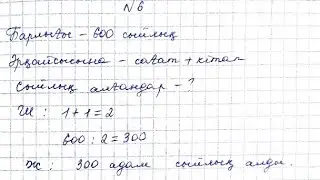 №6
Барлығы - 600 сыйлық
Әрқайсысына - сағат + кітап
Сыйлық алғандар - ?
Ш: 1+1=2
600:2=300
Ж: 300 адам сыйлық алды.